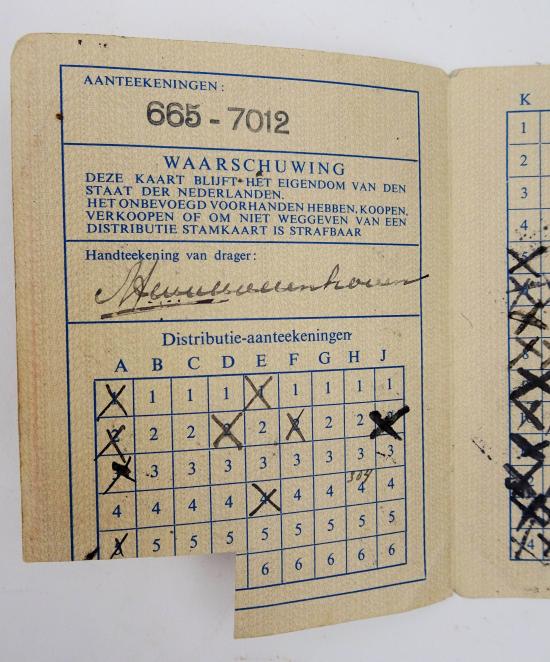 AANTEEKENINGEN:
665-7012
WAARSCHUWING
DEZE KAART BLIJFT HET EIGENDOM VAN DEN
STAAT DER NEDERLANDEN.
HET ONBEVOEGD VOORHANDEN HEBBEN, KOOPEN,
VERKOOPEN OF OM NIET WEGGEVEN VAN EEN
DISTRIBUTIE STAMKAART IS STRAFBAAR
Handteekening van drager:
Distributie-aanteekeningen
A B C D E F G H J
1 1 1 1 1 1 1 1
2 2 2 2 2 2 2
3 3 3 3 3 3 3 3
304
4 4 4 4 4 4 4 4 4
5 5 5 5 5 5 5 5
6 6 6 6 6
K
1
2
3
4